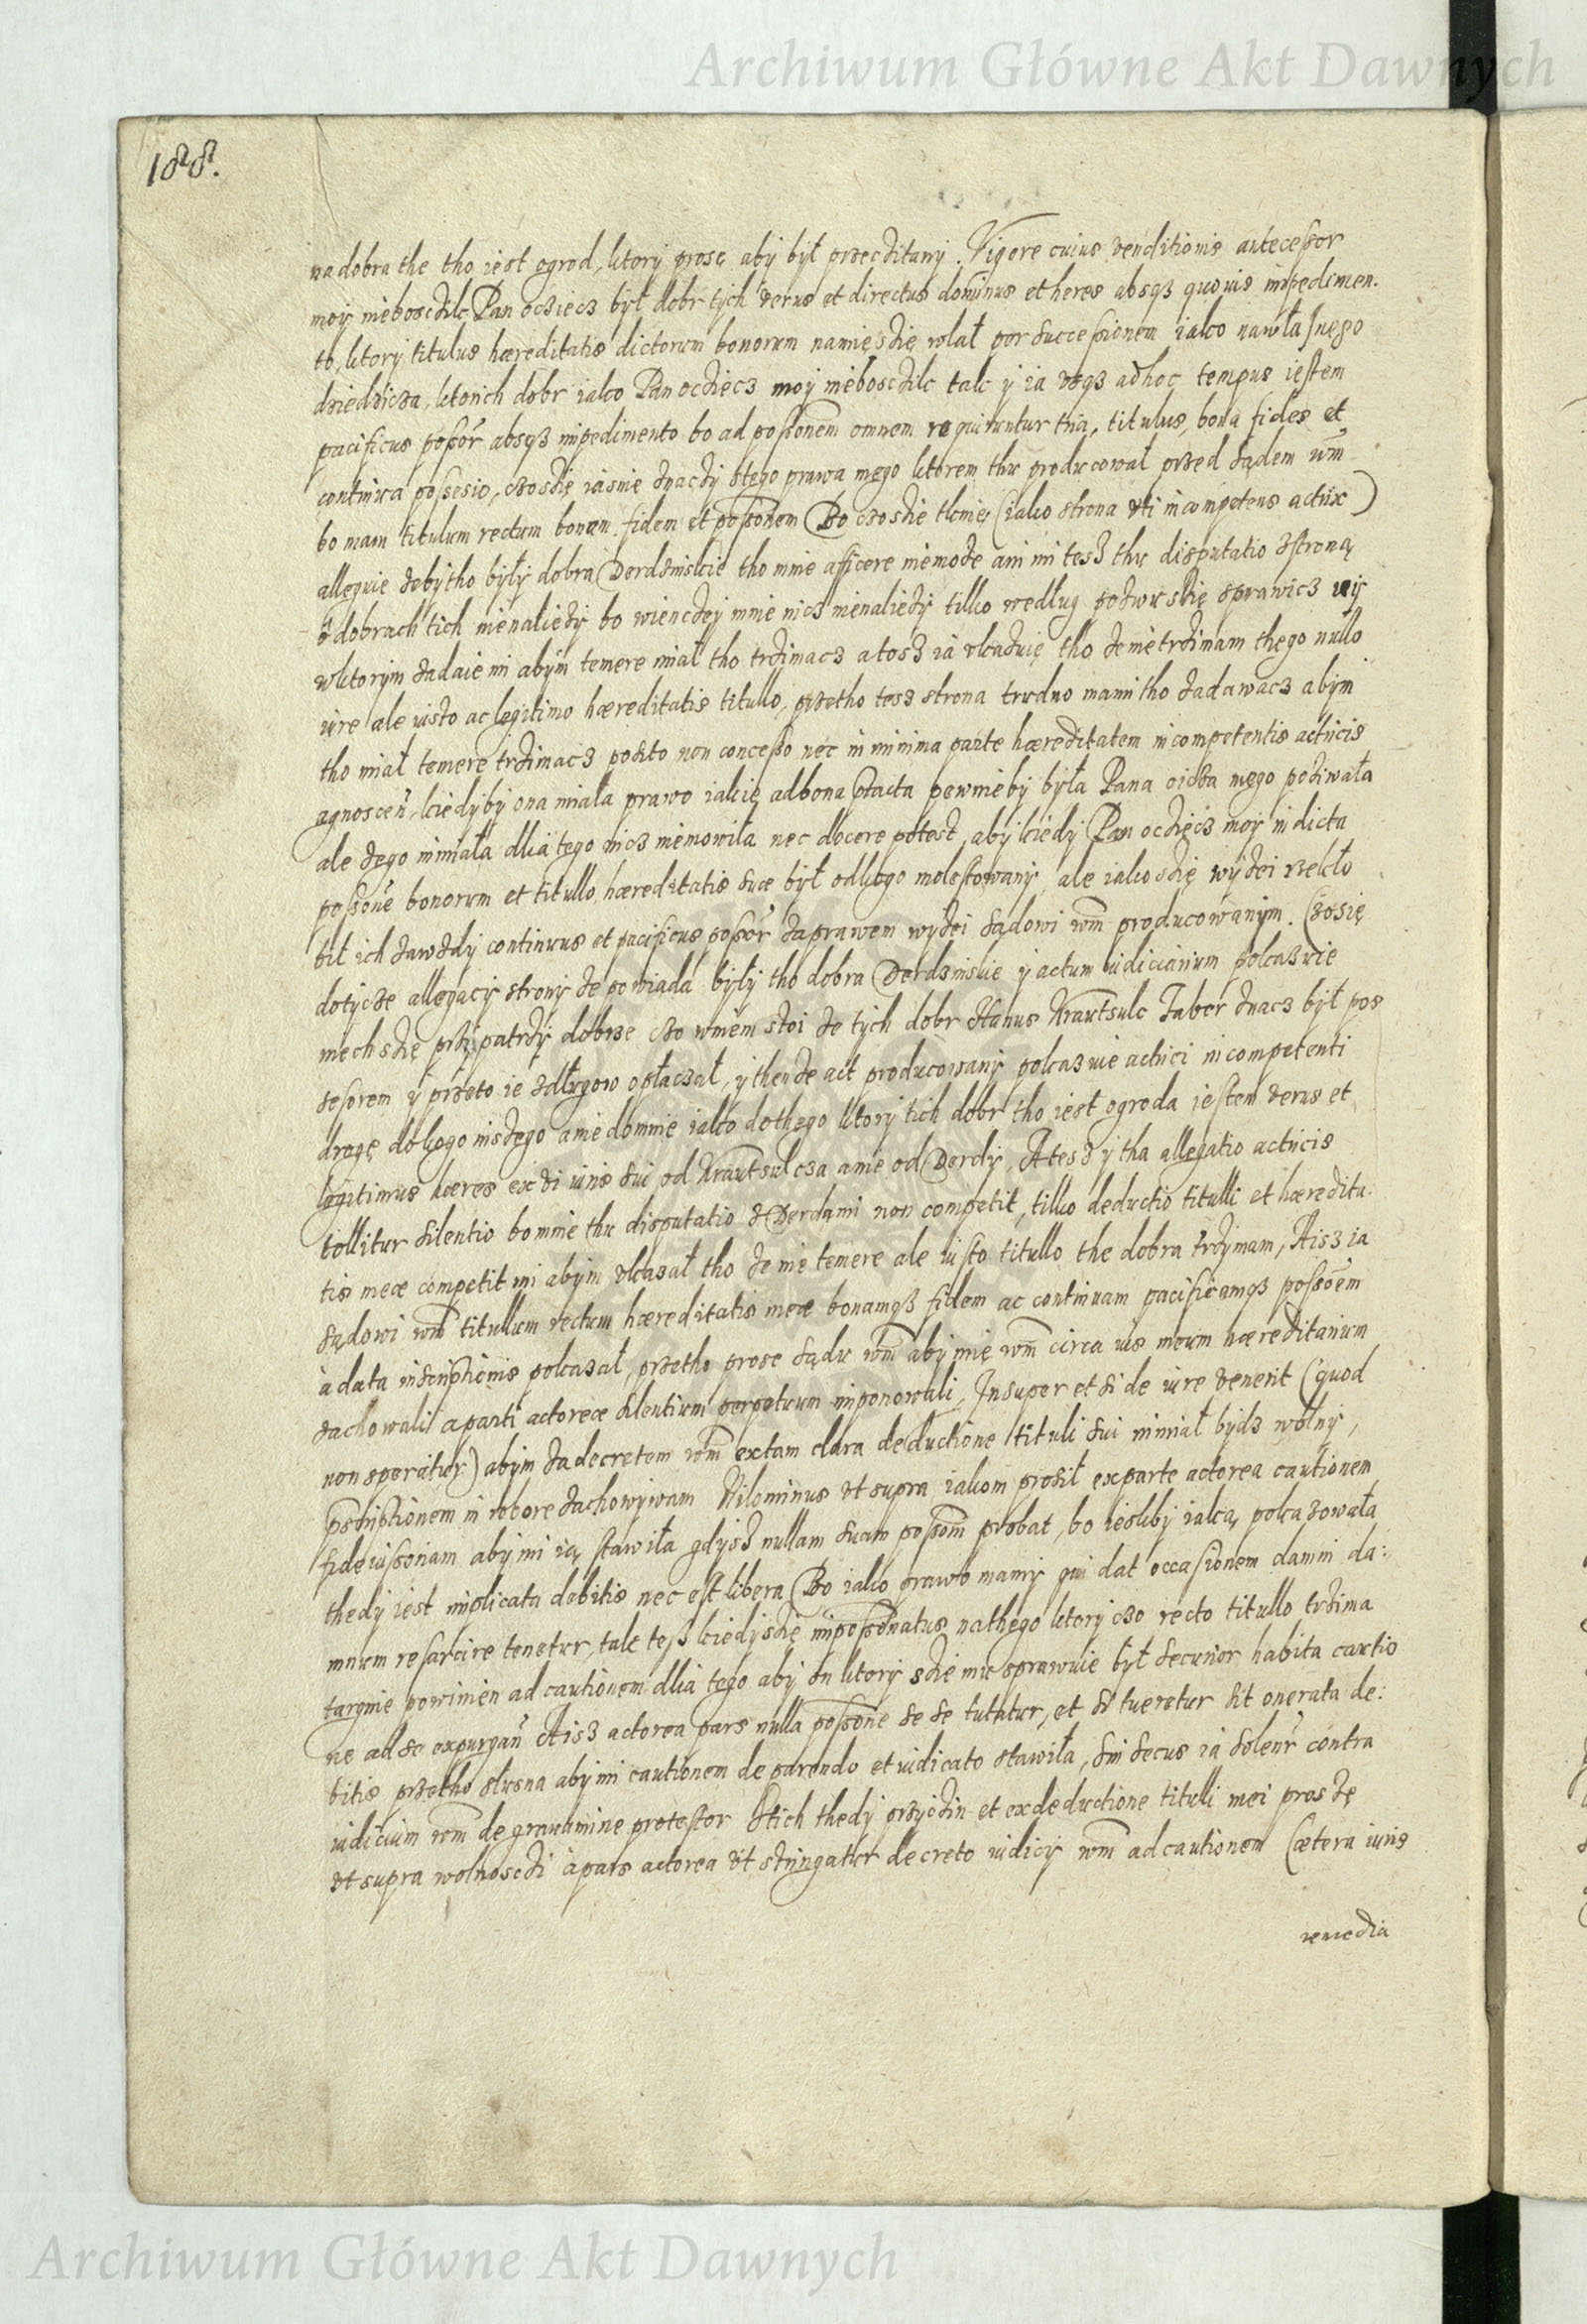 Archiwum Główne Akt Dawnych
188.
na dobra the tho iest ogrod, ktory prosę aby był przecżitany. Vigore cuius venditionis antecessor
moy niebosczik Pan ocziecz był dobr tych verus et directus dominus et heres absqȝ quouis impedimen.
to, ktory titulus hæreditatis dictorum bonorum namię szię wlał per successionem iako nawłasnego
dziedzicza, ktorich dobr iako Pan ocziecz moy niebosczik tak y ia vsqȝ adhoc tempus iestem
pacificus possor absqȝ impedimento bo ad possonem omnem requiruntur tria, titulus, bona fides et
continua possesio, czoszię iasnie znaczy stego prawa mego ktorem thu producował przed sądem wm
bo mam titulum rectum bonam fidem et possonem Bo czo szie tknie (iako strona vti incompetens actrix)
alleguie żeby tho były dobra Derdzinskie tho mnie afficere niemoże ani mi tesz thu disputatio zstroną
o dobrach tich nienalieży bo wienczey mnie nicz nienalieży tilko według pozwu szię sprawicz
wktorym zadaie mi abym temere miał tho trzimacz a tosz ia vkazuię tho że nie trzimam thego nullo
iure ale iusto ac legitimo hæreditatis titullo, przetho tesz strona trudno mami tho zadawacz abym
tho miał temere trzimacz posito non concesso nec in minima parte hæreditatem incompetentis actricis
agnoscen̄, kiedyby ona miała prawo iakie adbona ztacta pewnieby była Pana oicza mego poziwała
ale żego nimiała dlia tego nicz niemowiła nec docere potest, aby kiedy Pan ocziecz moy in dicta
possone bonorum et titullo hæreditatis suæ był odkogo molestowany, ale iako szię wyżei rzekło
bił ich zawżdy continuus et pacificus possor zaprawem wyżei sądowi wm producowanym. Czosię
dotycże allegacij strony że powiada były tho dobra Derdzinskie y actum iudiciarium pokazuie
niech szię przipatrzy dobrze czo wniem stoi że tych dobr Hanus Krautsulc Faber znacz był pos
sesorem y przeto ie zdługow opłaczał, y thenże act producowany pokazuie actrici incompetenti
drogę do kogo inszego a niedomnie iako dothego ktory tich dobr tho iest ogroda iestem verus et
legitimus hæres ex vi iuris sui od Krautsulcza a nie od Derdy, A tesz y tha allegatio actricis
tollitur silentio bo mnie thu disputatio z Derdami non competit, tilko deductio titulli et hæredita.
tis meæ competit mi abym vkazał tho że nie temere ale iusto titullo the dobra trzymam, Aisz ia
sądowi wm titullum rectum hæreditatis meæ bonamqȝ fidem ac continuam pacificamqȝ possoem
à data inscriptionis pokazał, przetho prosze sądu wm aby mię wm circa ius meum hæreditarium
zachowali a parti actoreæ silentium perpetuum imponowali, Insuper et si de iure venerit (quod
non speratur) abym zadecretem wm extam clara deductione tituli sui nimiał bydz wolny,
pscriptionem in robore zachowywam Nilominus vt supra iakom prosił ex parte actorea cautionem
fideiussoriam aby mi ią stawiła gdysz nullam suam possom probat, bo iesliby iaką pokazowała
thedy iest implicata debitis nec est libera Bo iako prawo mamy qui dat occasionem damni da:
mnum resarcire tenetur, tak tesz kiedy szię impossonatus nathego ktory czo recto titullo trzima
targnie powinien ad cautionem dlia tego aby on ktory szię mu sprawuie był securior habita cautio
ne ad se expurgan̄ Aisz actorea pars nulla possone se se tutatur, et si tueretur sit onerata de:
bitis przetho slusna aby mi cautionem de parendo et iudicato stawiła, sin secus ia solenr contra
iudicium wm de gravamine protestor Stich thedy przyczin et ex deductione titulli mei proszę
vt supra wolnosczi à pars actorea vt stringatur decreto iudicij wm ad cautionem Cætera iuris
remedia
Archiwum Główne Akt Dawnych